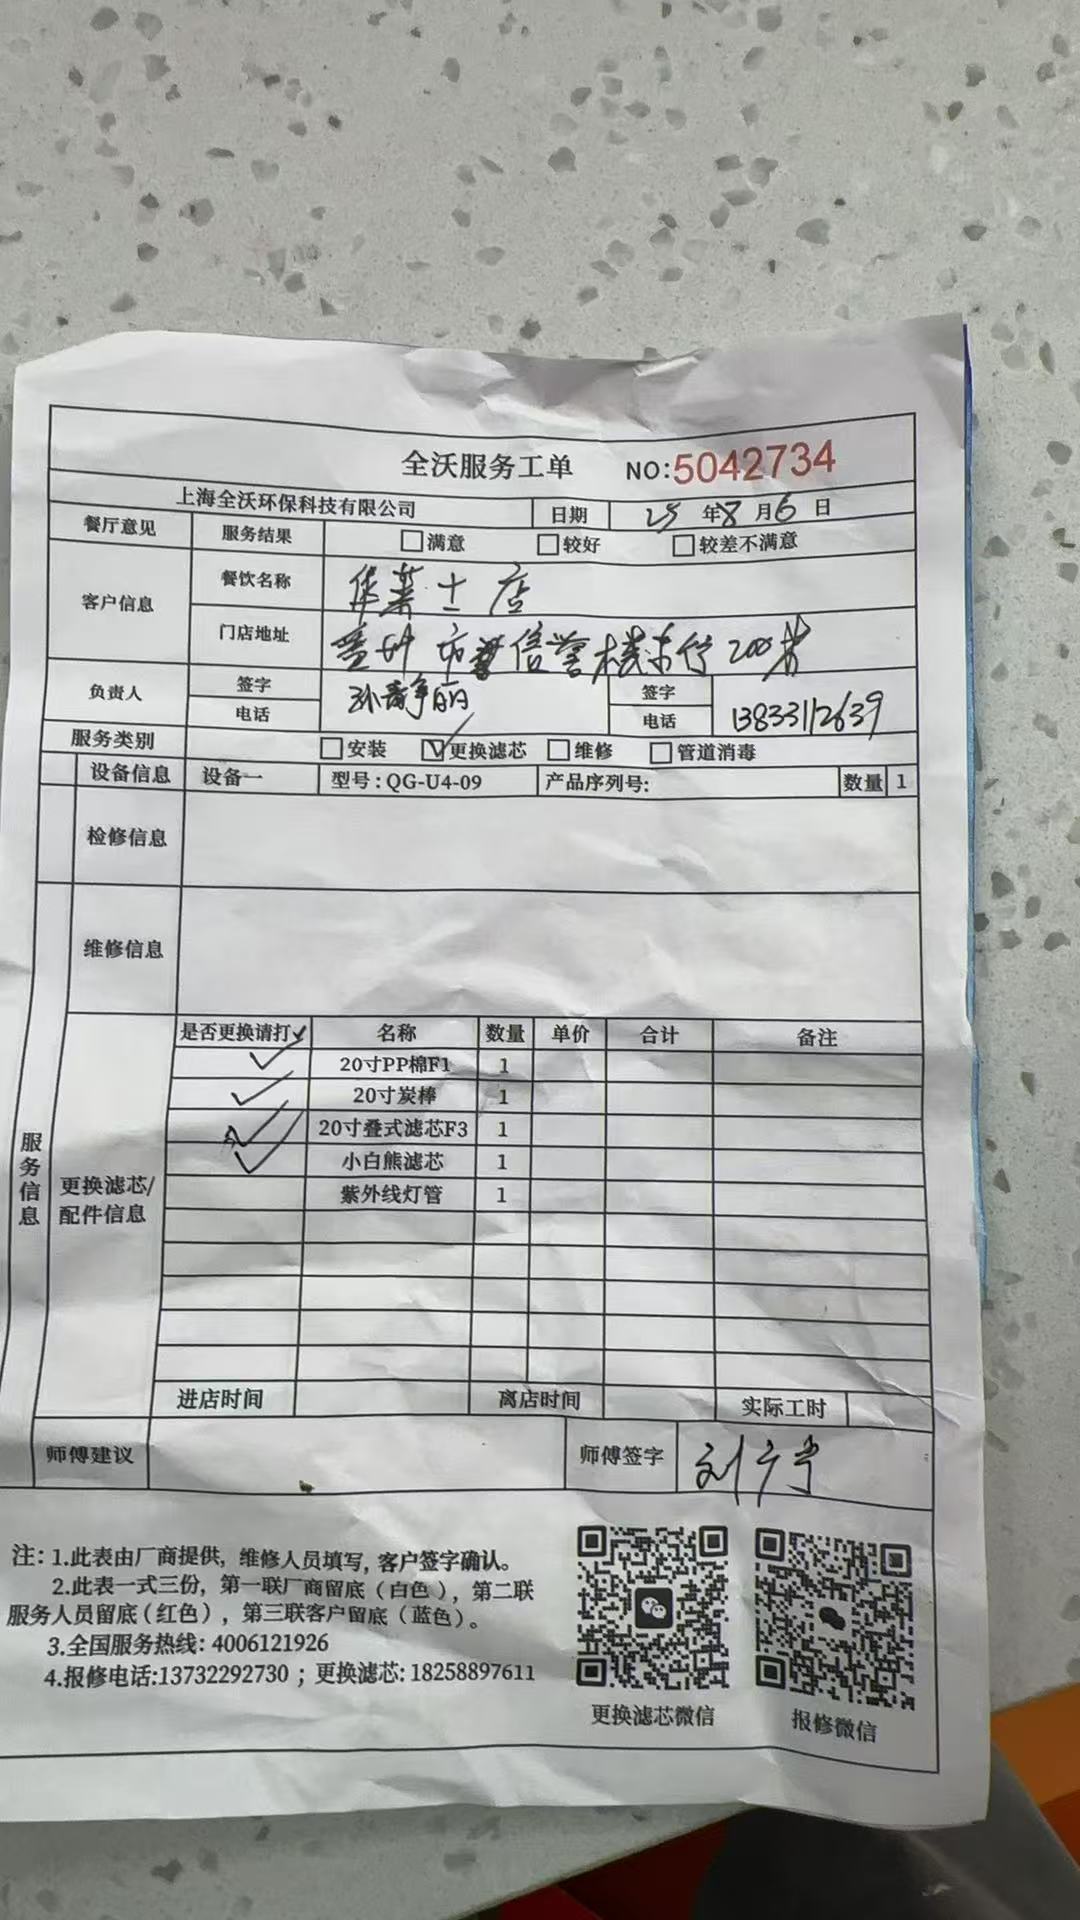 全沃服务工单 NO:5042734
上海全沃环保科技有限公司 日期 25年8月6日
餐厅意见 服务结果 □满意 □较好 □较差不满意
客户信息 餐饮名称 华莱士店
门店地址 市 信誉楼东行200米
负责人 签字 孙静丽 签字
电话 电话 13833112639
服务类别 □安装 ☑更换滤芯 □维修 □管道消毒
设备信息 设备一 型号:QG-U4-09 产品序列号: 数量 1
检修信息
维修信息
服务信息
更换滤芯/配件信息
是否更换请打✓ 名称 数量 单价 合计 备注
✓ 20寸PP棉F1 1
✓ 20寸炭棒 1
✓ 20寸叠式滤芯F3 1
✓ 小白熊滤芯 1
紫外线灯管 1
进店时间 离店时间 实际工时
师傅建议 师傅签字 刘
注: 1.此表由厂商提供, 维修人员填写, 客户签字确认。
2.此表一式三份, 第一联厂商留底(白色), 第二联
服务人员留底(红色), 第三联客户留底(蓝色)。
3.全国服务热线: 4006121926
4.报修电话:13732292730 ; 更换滤芯: 18258897611
更换滤芯微信 报修微信